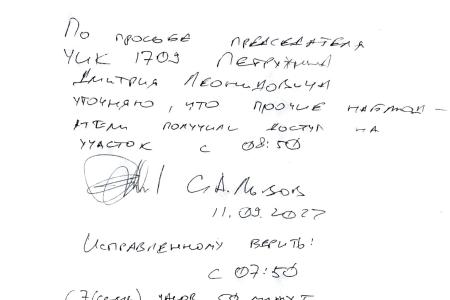 По просьбе председателя
УИК 1709 Петрухина
Дмитрия Леонидовича
уточняю, что прочие наблюд-
атели получили доступ на
участок с 08:50
С.А. Львов
11.09.2022
Исправленному верить!
с 07:50
(7(семь) часов 50 минут